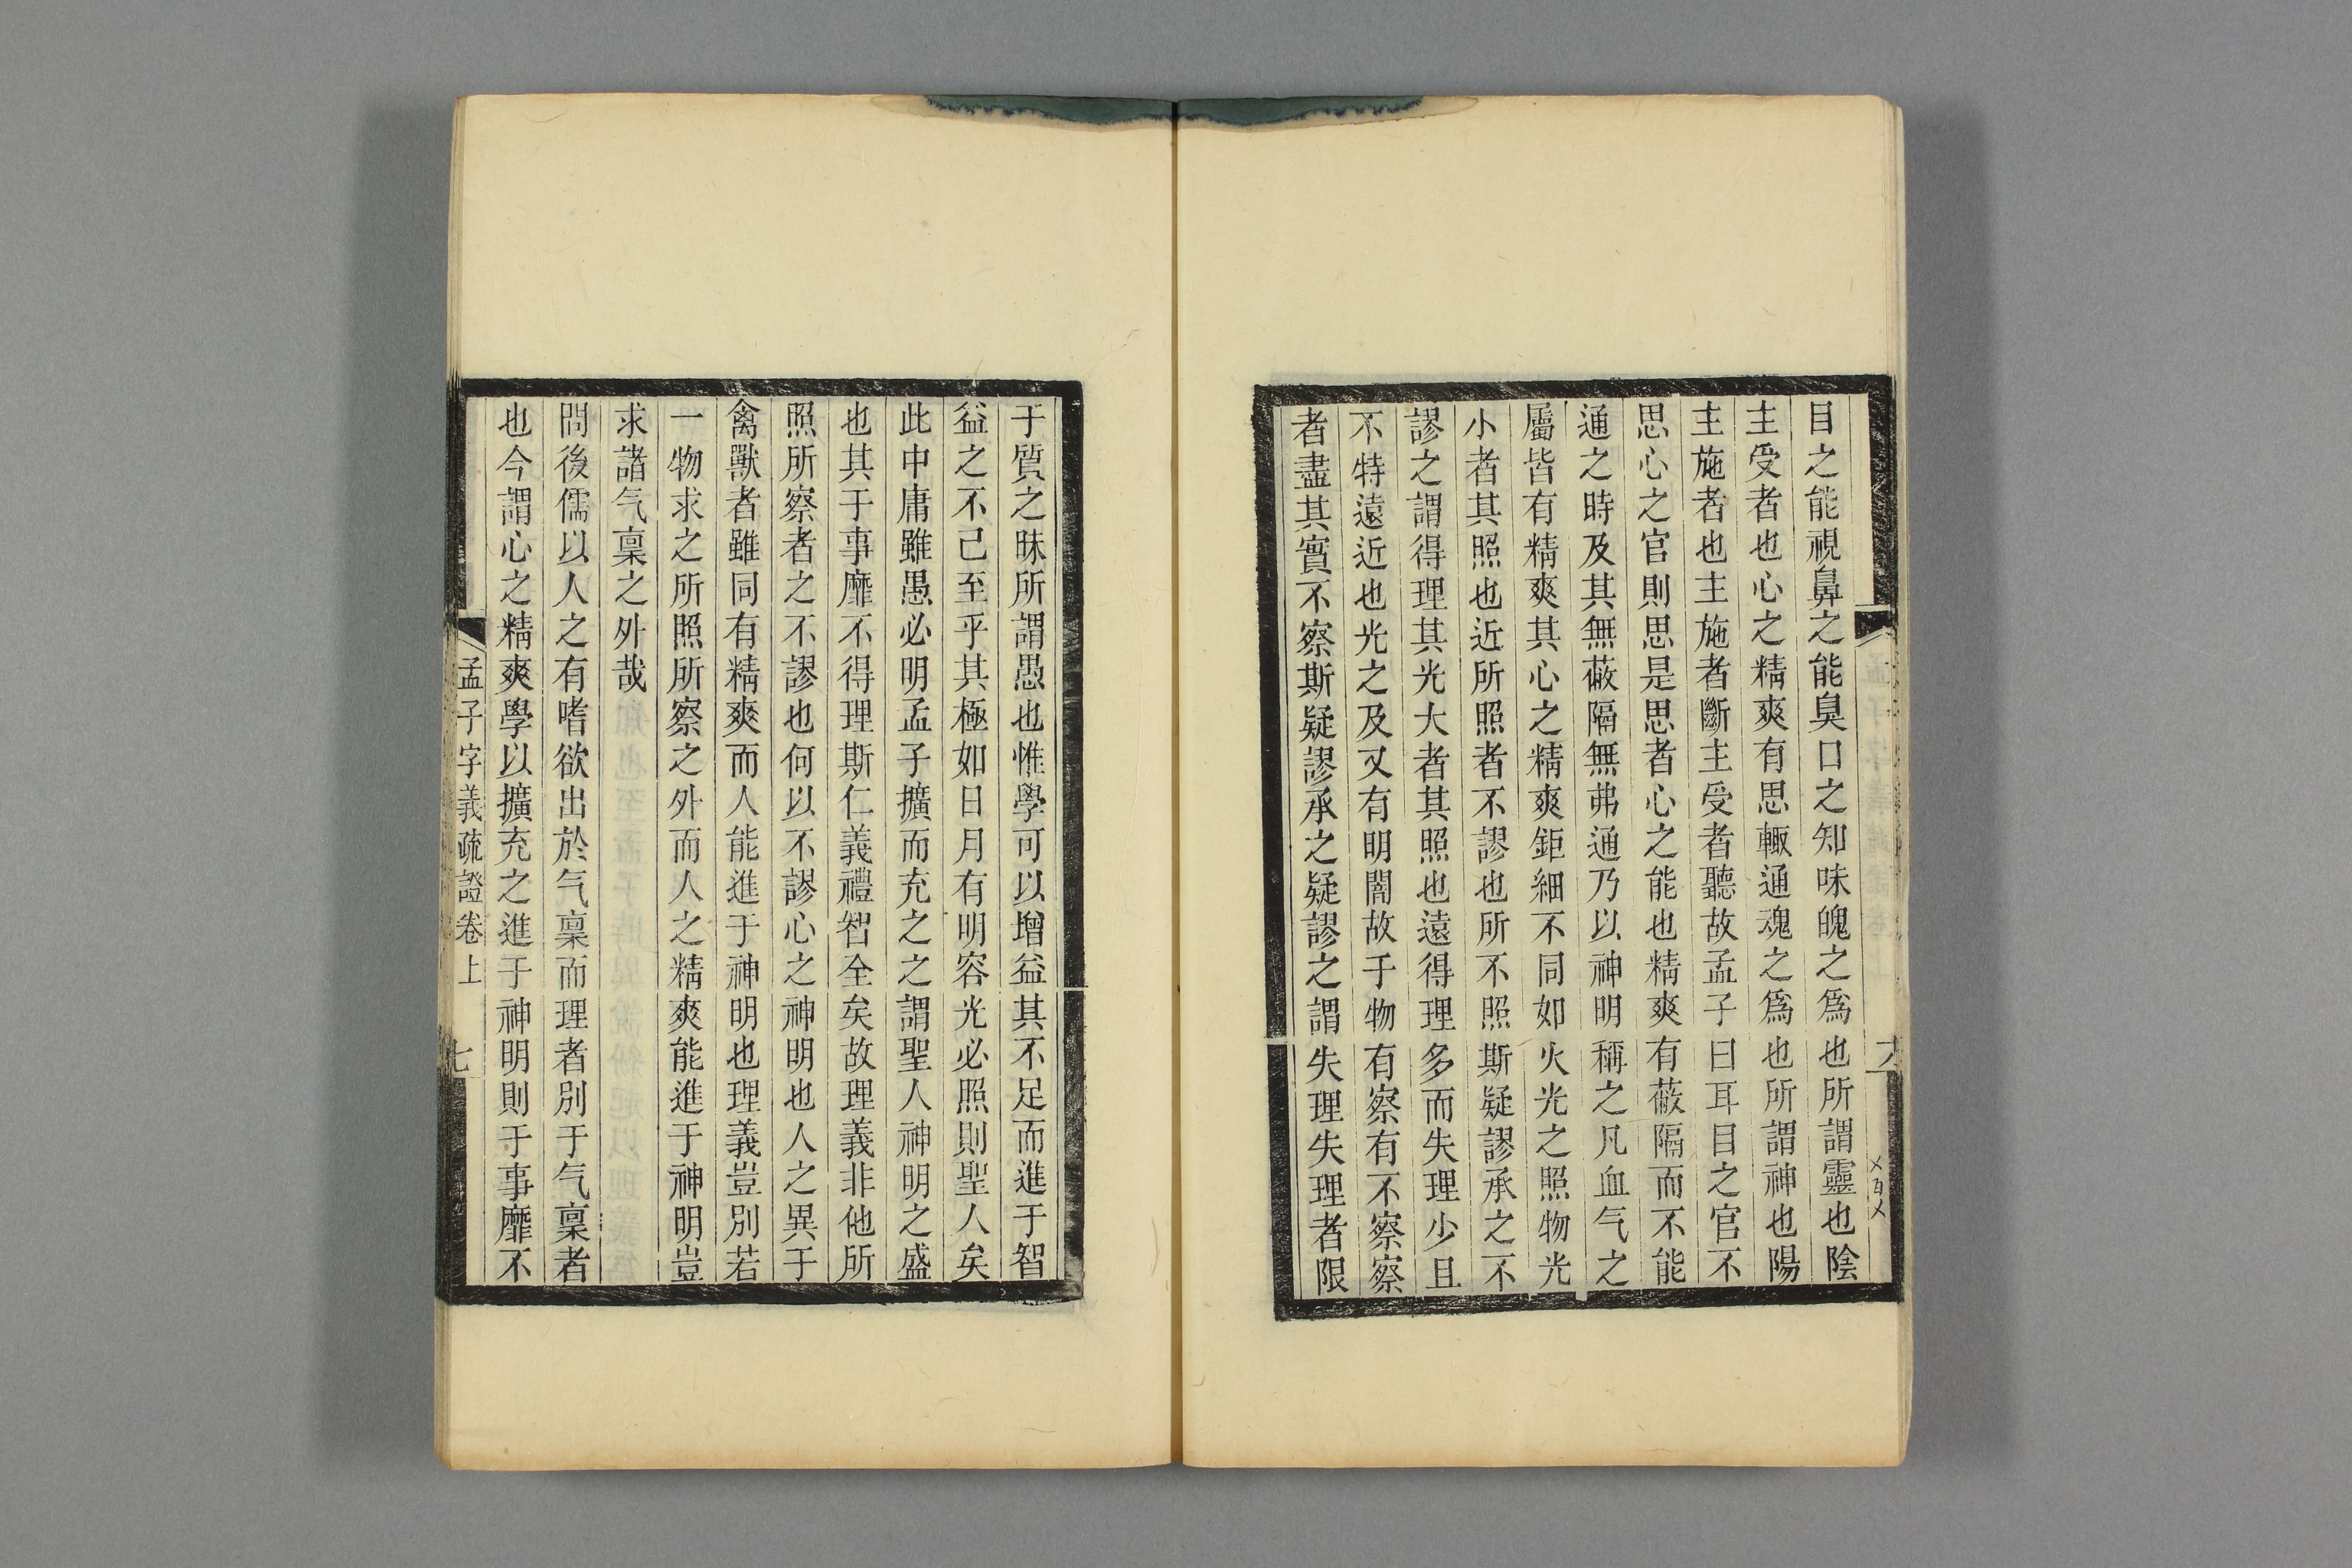 目之能視鼻之能臭口之知味魄之爲也所謂靈也陰
主受者也心之精爽有思輒通魂之爲也所謂神也陽
主施者也主施者斷主受者聽故孟子曰耳目之官不
思心之官則思是思者心之能也精爽有蔽隔而不能
通之時及其無蔽隔無弗通乃以神明稱之凡血气之
屬皆有精爽其心之精爽鉅細不同如火光之照物光
小者其照也近所照者不謬也所不照斯疑謬承之不
謬之謂得理其光大者其照也遠得理多而失理少且
不特遠近也光之及又有明闇故于物有察有不察察
者盡其實不察斯疑謬承之疑謬之謂失理失理者限
于質之昧所謂愚也惟學可以增益其不足而進于智
益之不已至乎其極如日月有明容光必照則聖人矣
此中庸雖愚必明孟子擴而充之之謂聖人神明之盛
也其于事靡不得理斯仁義禮智全矣故理義非他所
照所察者之不謬也何以不謬心之神明也人之異于
禽獸者雖同有精爽而人能進于神明也理義豈別若
一物求之所照所察之外而人之精爽能進于神明豈
求諸气稟之外哉
問後儒以人之有嗜欲出於气稟而理者別于气稟者
也今謂心之精爽學以擴充之進于神明則于事靡不
孟子字義疏證卷上
七